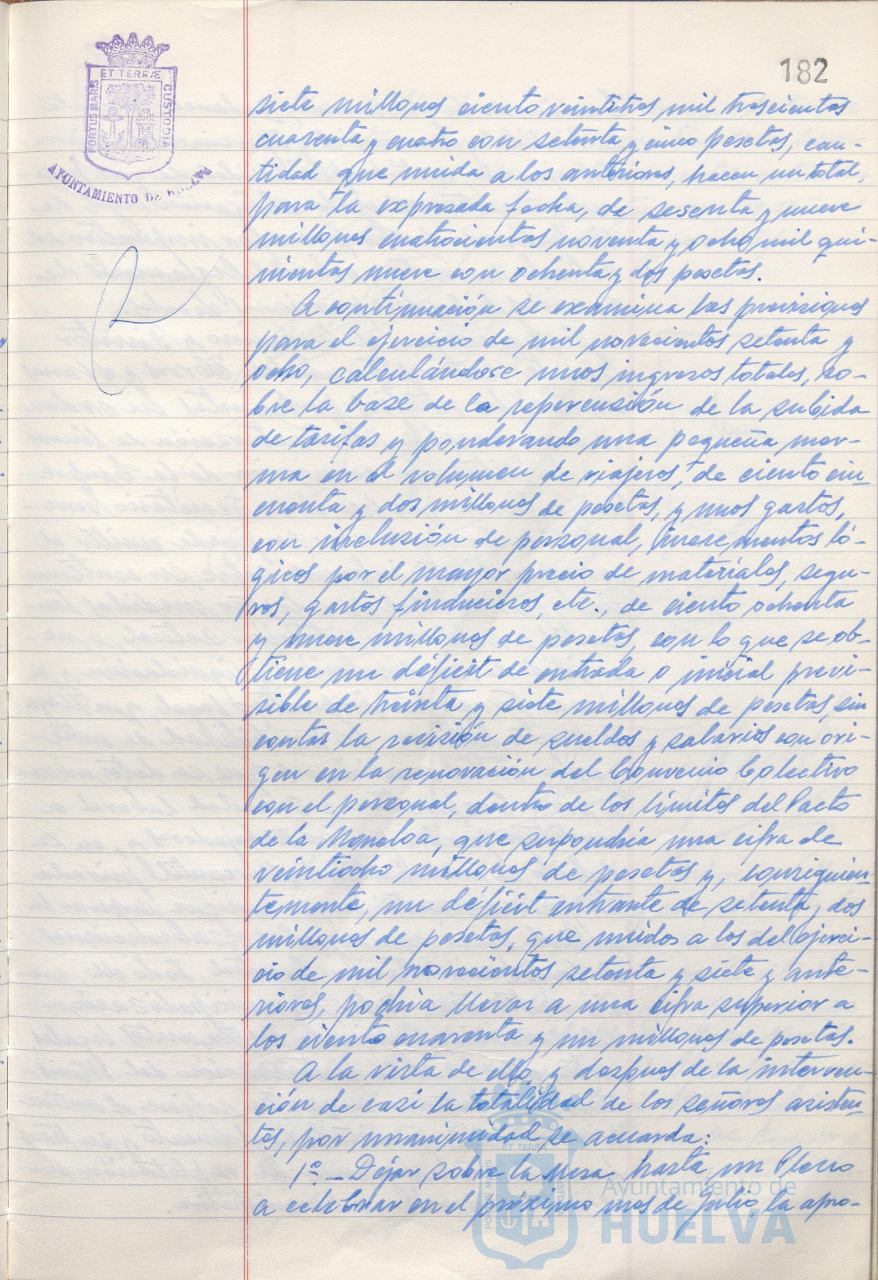 182
ET TERRÆ
PORTUS MARIS
CUSTODIA
AYUNTAMIENTO DE
siete millones ciento veintitres mil trescientas
cuarenta y cuatro con setenta y cinco pesetas, can-
tidad que unida a los anteriores, hacen un total,
para la expresada fecha, de sesenta y nueve
millones cuatrocientas noventa y ocho mil qui-
nientas nueve con ochenta y dos pesetas.
A continuación se examina las previsiones
para el ejercicio de mil novecientos setenta y
ocho, calculándose unos ingresos totales, so-
bre la base de la repercusión de la subida
de tarifas y ponderando una pequeña mer-
ma en el volumen de viajeros, de ciento cin-
cuenta y dos millones de pesetas, y unos gastos,
con inclusión de personal, incrementos ló-
gicos por el mayor precio de materiales, segu-
ros, gastos financieros, etc., de ciento ochenta
y nueve millones de pesetas, con lo que se ob-
tiene un déficit de entrada o inicial previ-
sible de treinta y siete millones de pesetas, sin
contar la revisión de sueldos y salarios con ori-
gen en la renovación del Convenio Colectivo
con el personal, dentro de los límites del Pacto
de la Moncloa, que supondría una cifra de
veintiocho millones de pesetas y, consiguien-
temente, un déficit entrante de setenta y dos
millones de pesetas, que unidos a los del ejerci-
cio de mil novecientos setenta y siete y ante-
riores, podría llevar a una cifra superior a
los ciento cuarenta y un millones de pesetas.
A la vista de ello, y después de la interven-
ción de casi la totalidad de los señores asisten-
tes, por unanimidad se acuerda:
1º.- Dejar sobre la Mesa, hasta un Pleno
a celebrar en el próximo mes de Julio, la apro-
Ayuntamiento de
HUELVA